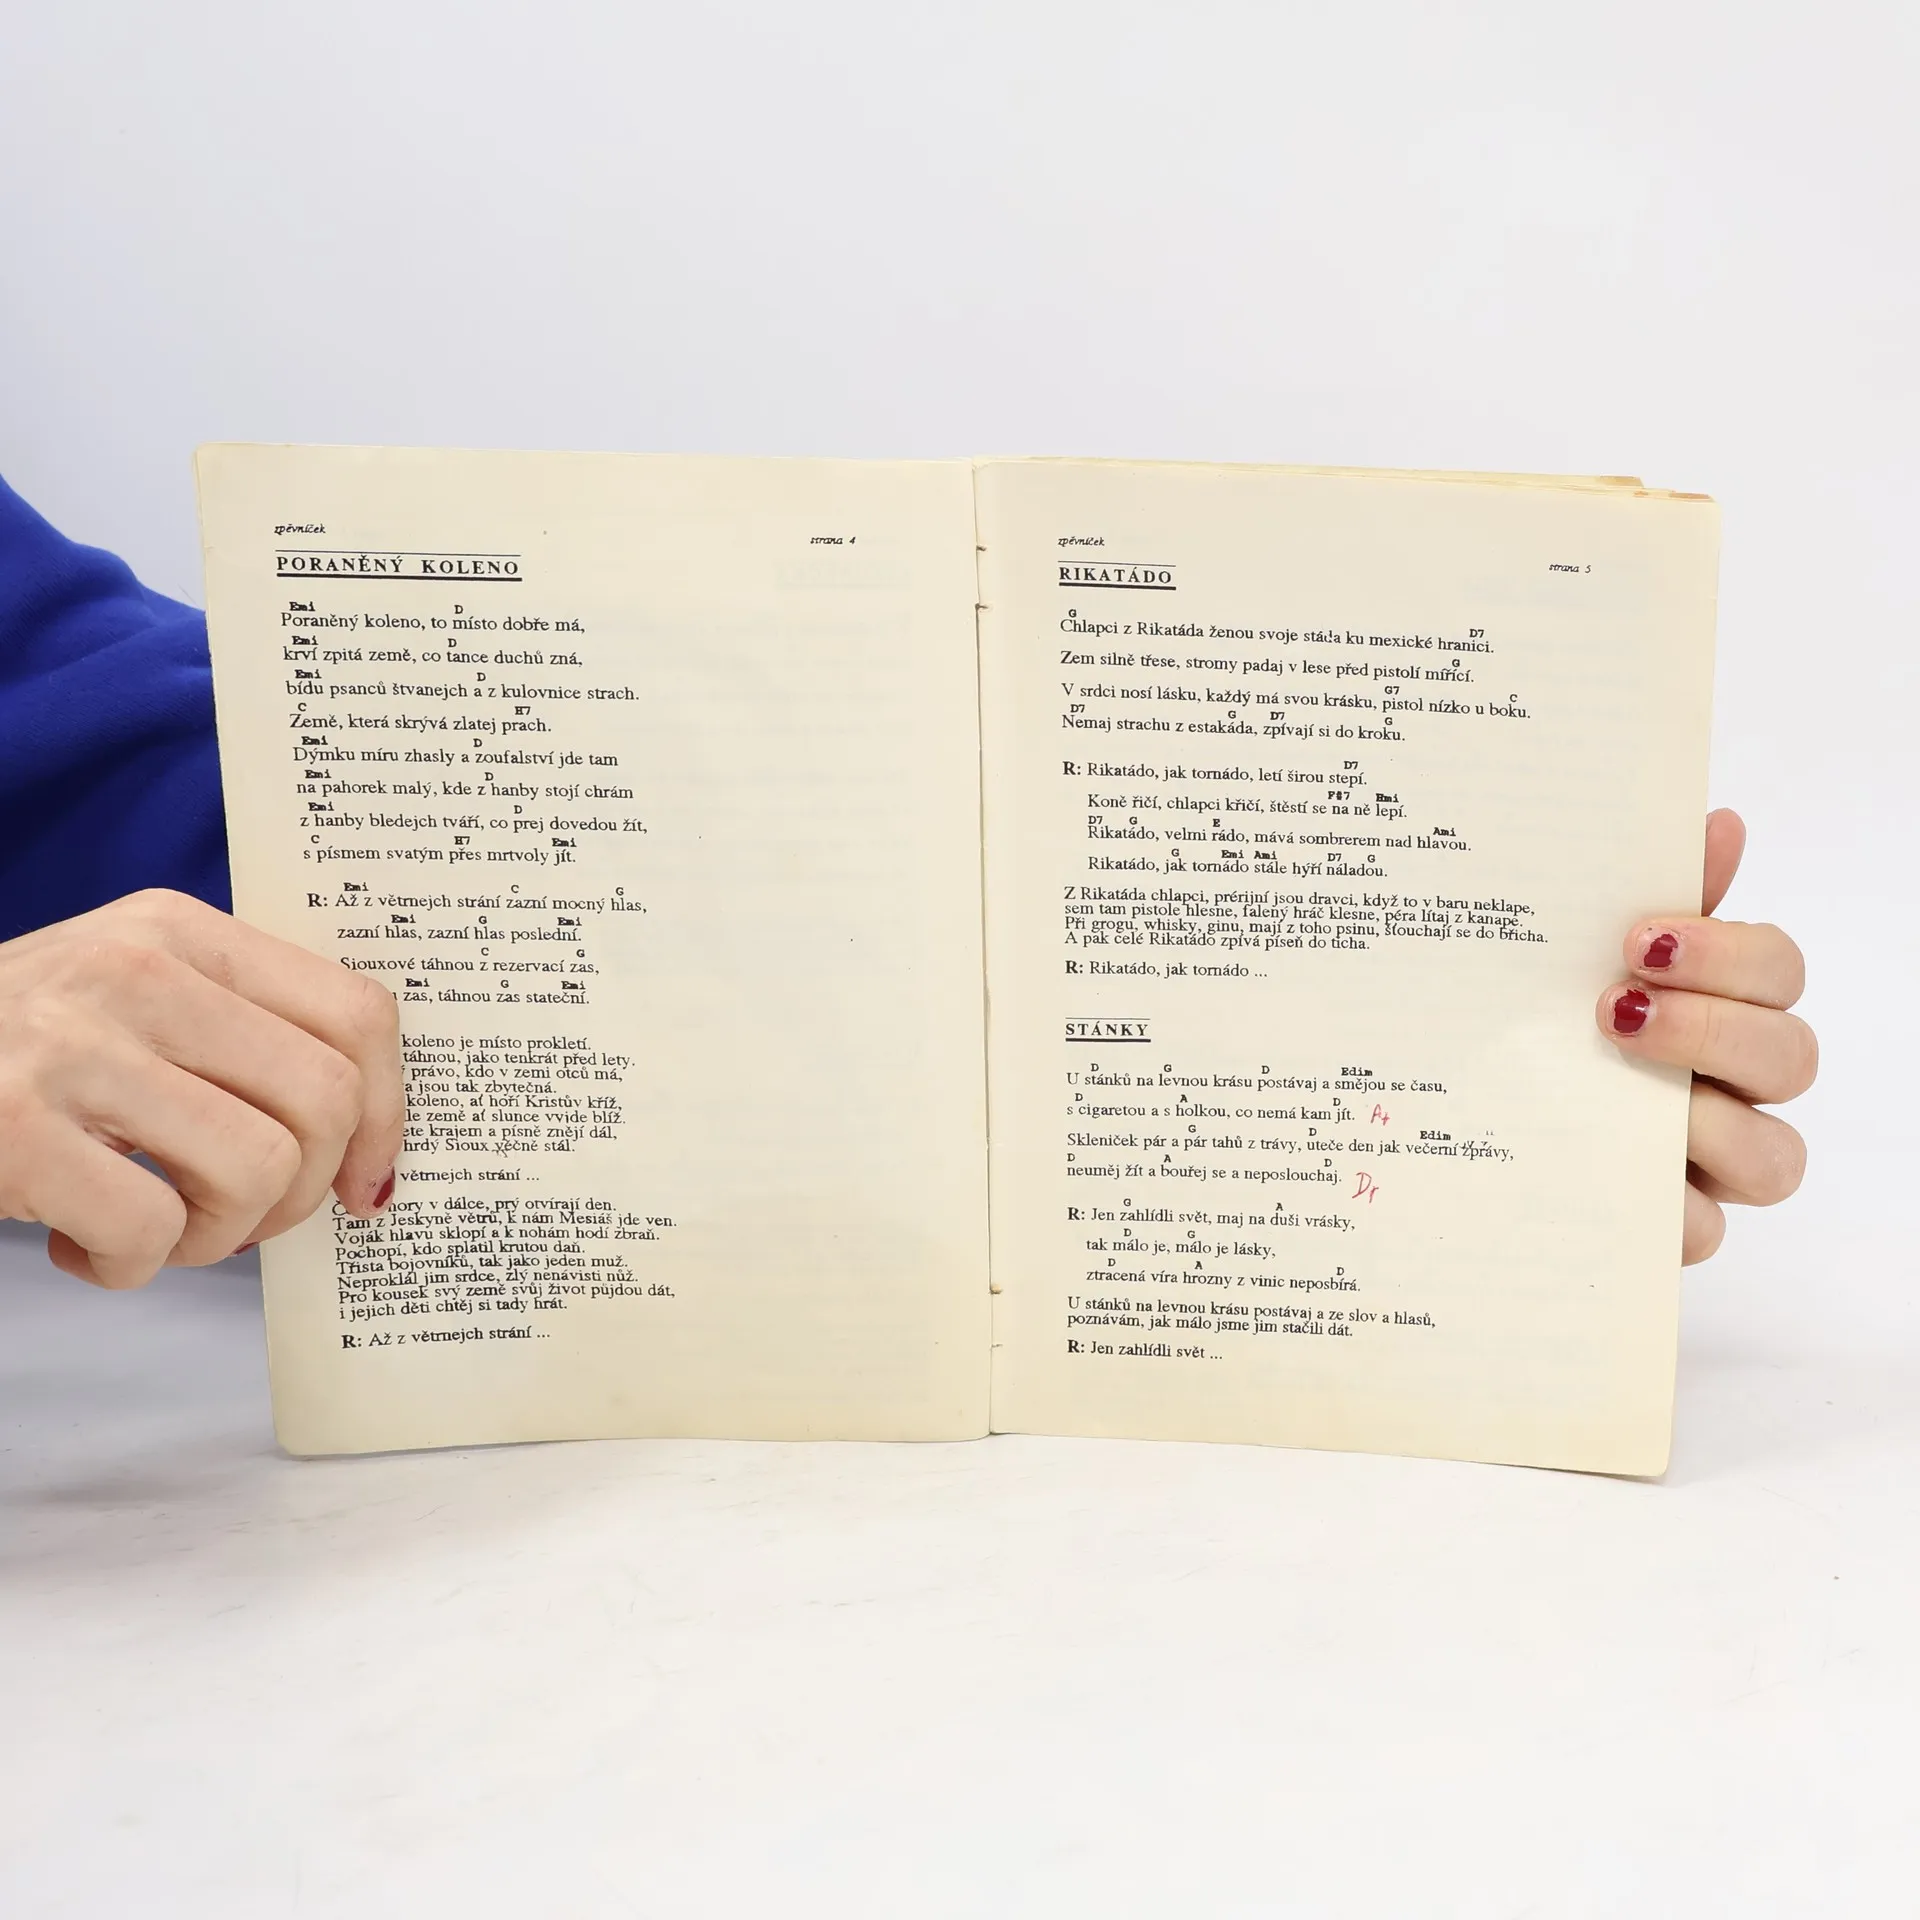 zpěvníček
strana 4
PORANĚNÝ KOLENO
Emi D
Poraněný koleno, to místo dobře má,
Emi D
krví zpitá země, co tance duchů zná,
Emi D
bídu psanců štvanejch a z kulovnice strach.
C H7
Země, která skrývá zlatej prach.
Emi D
Dýmku míru zhasly a zoufalství jde tam
Emi D
na pahorek malý, kde z hanby stojí chrám
Emi D
z hanby bledejch tváří, co prej dovedou žít,
C H7 Emi
s písmem svatým přes mrtvoly jít.
Emi C G
R: Až z větrnejch strání zazní mocný hlas,
Emi G Emi
zazní hlas, zazní hlas poslední.
C G
Siouxové táhnou z rezervací zas,
Emi G Emi
zas, táhnou zas stateční.
koleno je místo prokletí.
táhnou, jako tenkrát před lety.
právo, kdo v zemi otců má,
a jsou tak zbytečná.
koleno, ať hoří Kristův kříž,
země ať slunce vyjde blíž.
krajem a písně znějí dál,
hrdý Sioux věčně stál.
větrnejch strání ...
hory v dálce, prý otvírají den.
Tam z Jeskyně větrů, k nám Mesiáš jde ven.
Voják hlavu sklopí a k nohám hodí zbraň.
Pochopí, kdo splatil krutou daň.
Třista bojovníků, tak jako jeden muž.
Neproklál jim srdce, zlý nenávisti nůž.
Pro kousek svý země svůj život půjdou dát,
i jejich děti chtěj si tady hrát.
R: Až z větrnejch strání ...
zpěvníček
strana 5
RIKATÁDO
G D7
Chlapci z Rikatáda ženou svoje stáda ku mexické hranici.
G
Zem silně třese, stromy padaj v lese před pistolí mířící.
G7 C
V srdci nosí lásku, každý má svou krásku, pistol nízko u boku.
D7 G D7 G
Nemaj strachu z estakáda, zpívají si do kroku.
D7
R: Rikatádo, jak tornádo, letí širou stepí.
F#7 Hmi
Koně řičí, chlapci křičí, štěstí se na ně lepí.
D7 G E Ami
Rikatádo, velmi rádo, mává sombrerem nad hlavou.
G Emi Ami D7 G
Rikatádo, jak tornádo stále hýří náladou.
Z Rikatáda chlapci, prérijní jsou dravci, když to v baru neklape,
sem tam pistole hlesne, falený hráč klesne, péra lítaj z kanape.
Při grogu, whisky, ginu, mají z toho psinu, šťouchají se do břicha.
A pak celé Rikatádo zpívá píseň do ticha.
R: Rikatádo, jak tornádo ...
STÁNKY
D G D Edim
U stánků na levnou krásu postávaj a smějou se času,
D A D
s cigaretou a s holkou, co nemá kam jít.
G D Edim
Skleniček pár a pár tahů z trávy, uteče den jak večerní zprávy,
D A D
neuměj žít a bouřej se a neposlouchaj.
G A
R: Jen zahlídli svět, maj na duši vrásky,
D G
tak málo je, málo je lásky,
D A D
ztracená víra hrozny z vinic neposbírá.
U stánků na levnou krásu postávaj a ze slov a hlasů,
poznávám, jak málo jsme jim stačili dát.
R: Jen zahlídli svět ...